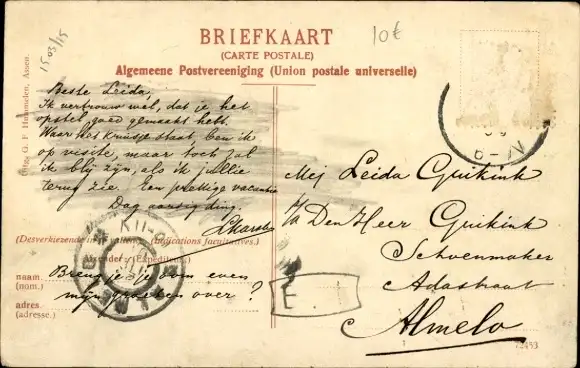 15 03/15
10€
BRIEFKAART
(CARTE POSTALE)
Algemeene Postvereeniging (Union postale universelle)
Beste Leida,
Ik vertrouw wel, dat je het
opstel goed gemaakt hebt.
Waar het kruisje staat, ben ik
op visite, maar toch zal
ik blij zijn, als ik jullie
terug zie. Een prettige vacantie
Dag aardig ding.
(Desverkiezende in te vullen). (Indications facultatives.)
Afzender: (Expéditeur.)
naam: Breng je je oom even
(nom.) mijn groeten over?
adres:
(adresse.)
Mej Leida Grikink
p/a Den Heer Grikink
Schoenmaker
Adastraat
Almelo
Uitg. G. F. Hummelen, Assen.
09
6-7V
XII-
E
72453